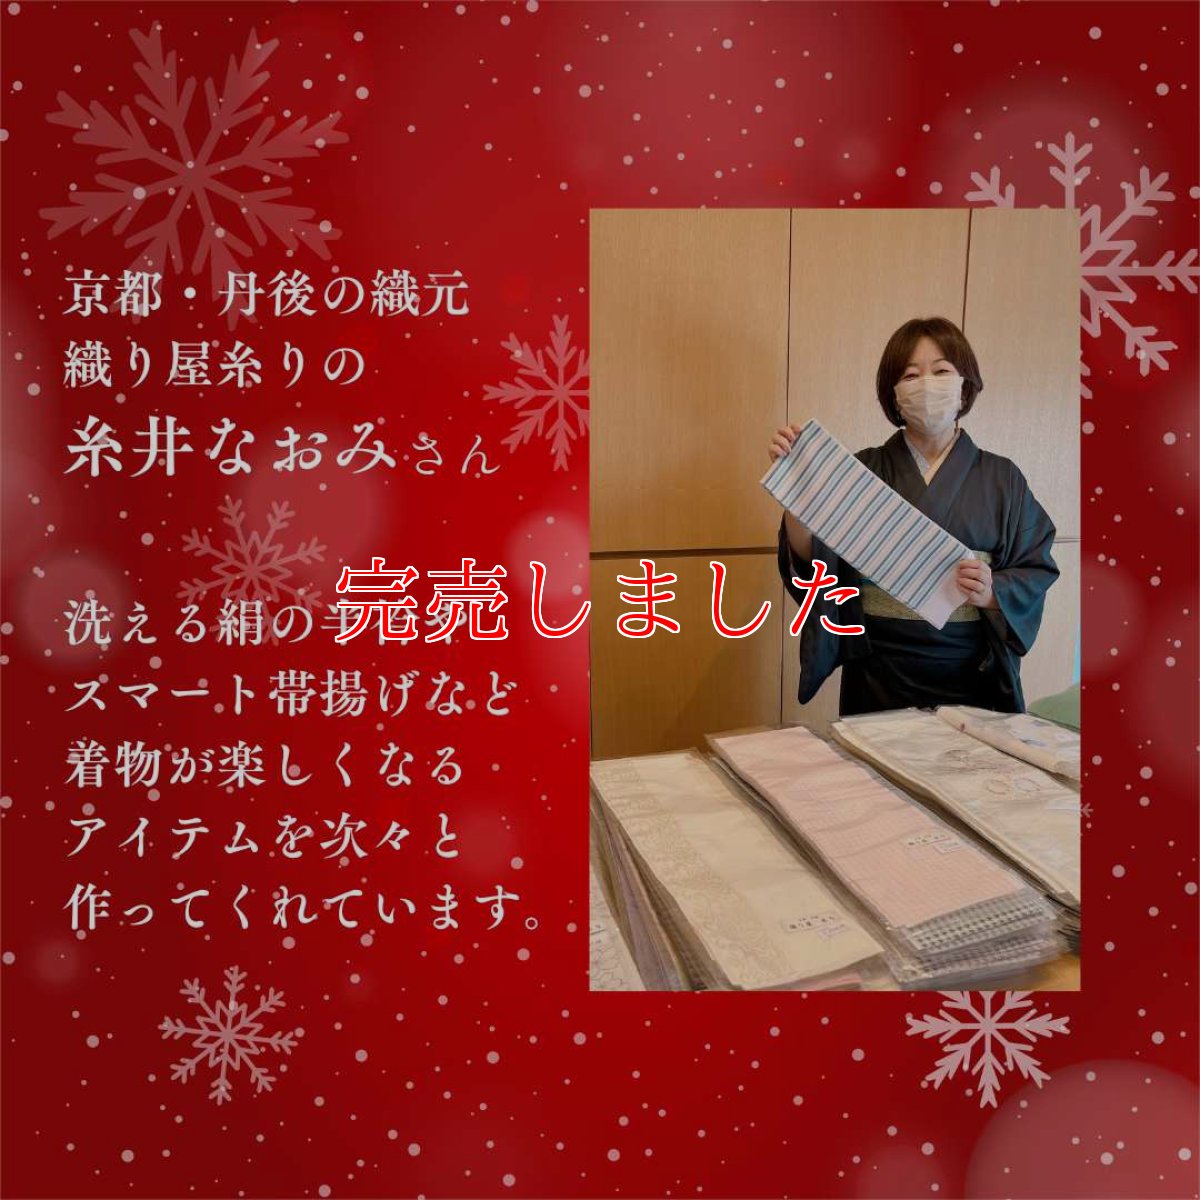 京都・丹後の織元
織り屋糸りの
糸井なおみさん
完売しました
洗える絹の半衿や
スマート帯揚げなど
着物が楽しくなる
アイテムを次々と
作ってくれています。